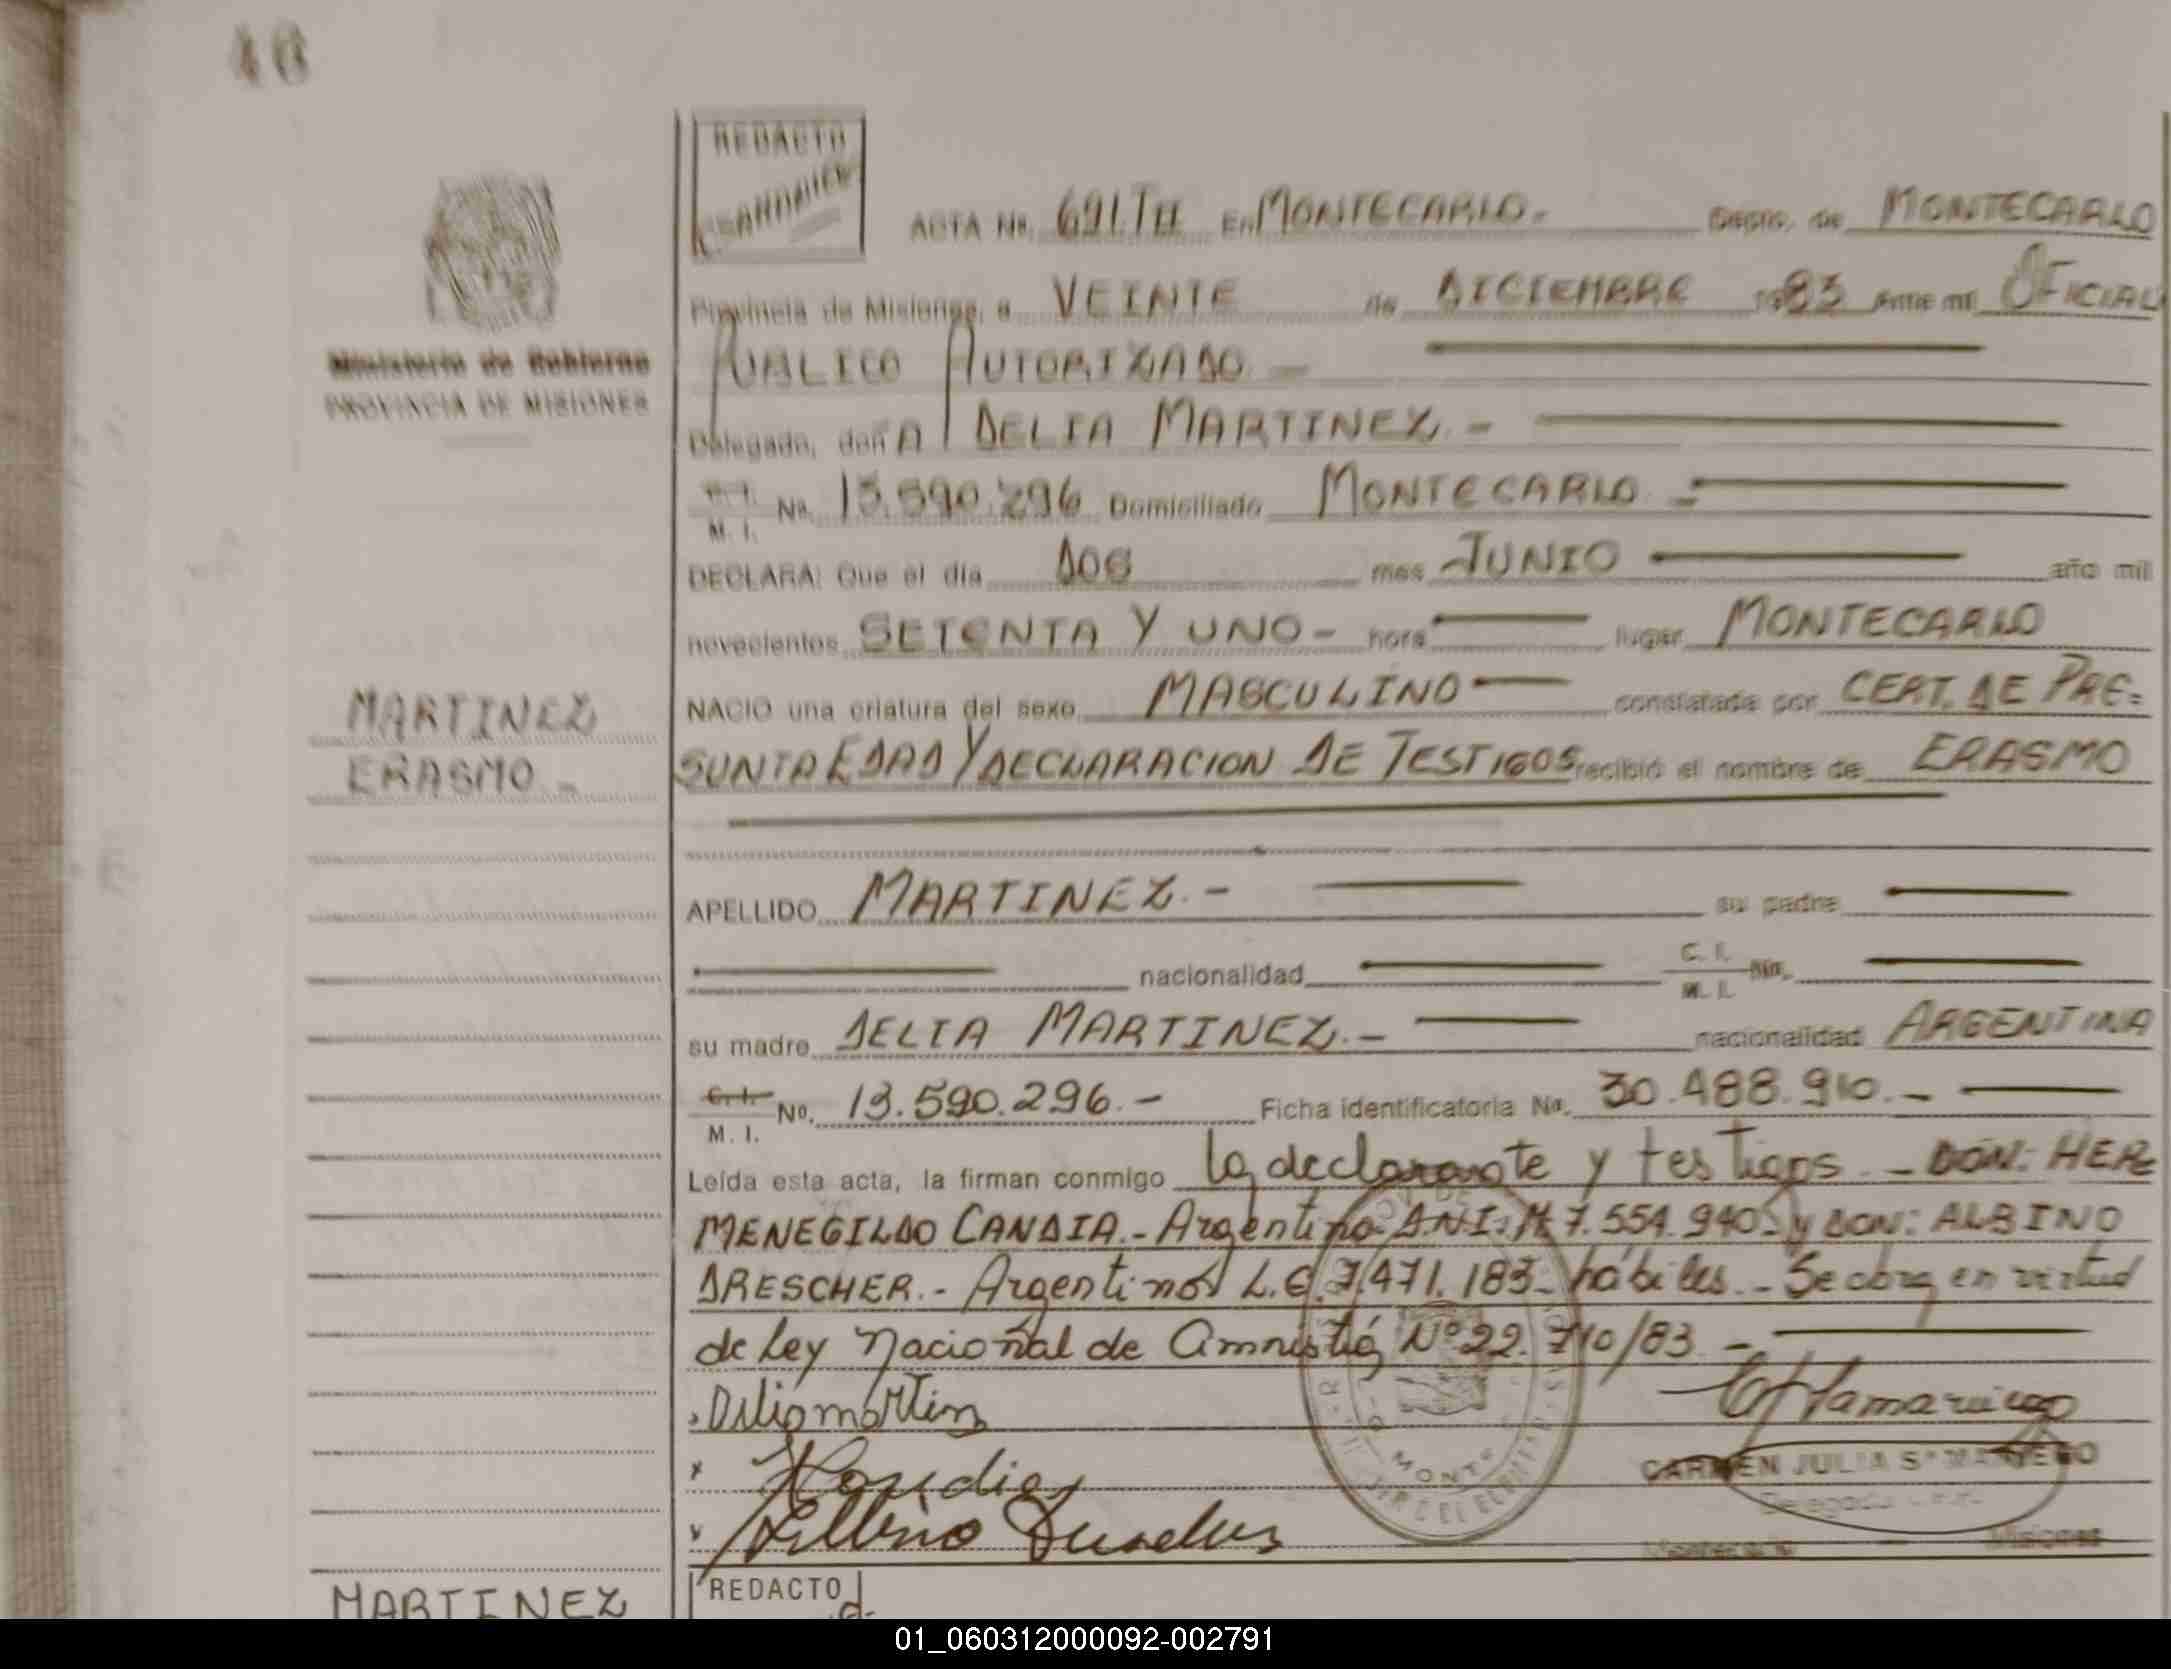 46
REDACTO
ACTA Nº. 691.TH En MONTECARLO.- Depto. de MONTECARLO
Provincia de Misiones, a VEINTE de DICIEMBRE 1983 Ante mí OFICIAL
Ministerio de Gobierno
PROVINCIA DE MISIONES
PUBLICO AUTORIZADO.-
Delegado, doñA DELIA MARTINEZ.-
C. I.
M. I. Nº. 13.590.296 Domiciliado MONTECARLO.-
DECLARA: Que el día DOS mes JUNIO año mil
novecientos SETENTA Y UNO- hora lugar MONTECARLO
NACIO una criatura del sexo MASCULINO constatada por CERT. DE PRE=
MARTINEZ
SUNTA EDAD Y DECLARACION DE TESTIGOS recibió el nombre de ERASMO
ERASMO.-
APELLIDO MARTINEZ.- su padre
nacionalidad C. I.
M. I. Nº.
su madre DELIA MARTINEZ.- nacionalidad ARGENTINA
C. I.
M. I. Nº. 13.590.296.- Ficha identificatoria Nº. 30.488.910.-
Leída esta acta, la firman conmigo la declarante y testigos.- DON: HER=
MENEGILDO CANDIA.- Argentino D.N.I. M. 7.554.940.- y DON: ALBINO
DRESCHER.- Argentinos L.E. 7.471.183- hábiles.- Se labra en virtud
de Ley Nacional de Amnistía Nº 22.710/83.-
Delia martin
Albino
CARMEN JULIA Sta MARIEGO
Delegada
Montecarlo Misiones
REDACTO
MARTINEZ
01_060312000092-002791